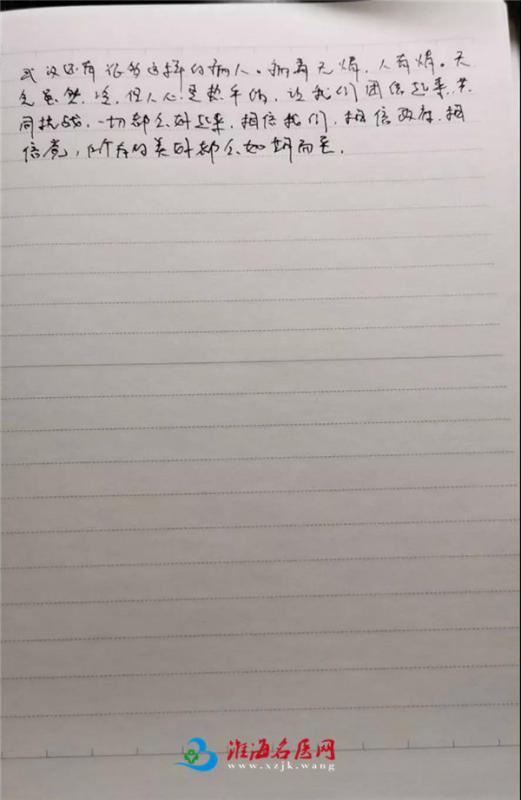 武汉还有很多这样的病人。病毒无情，人有情。天
气虽然冷，但人心是热乎的，让我们团结起来，共
同抗战，一切都会好起来，相信我们，相信政府，相
信党，所有的美好都会如期而至。
淮海名医网
www.xzjk.wang